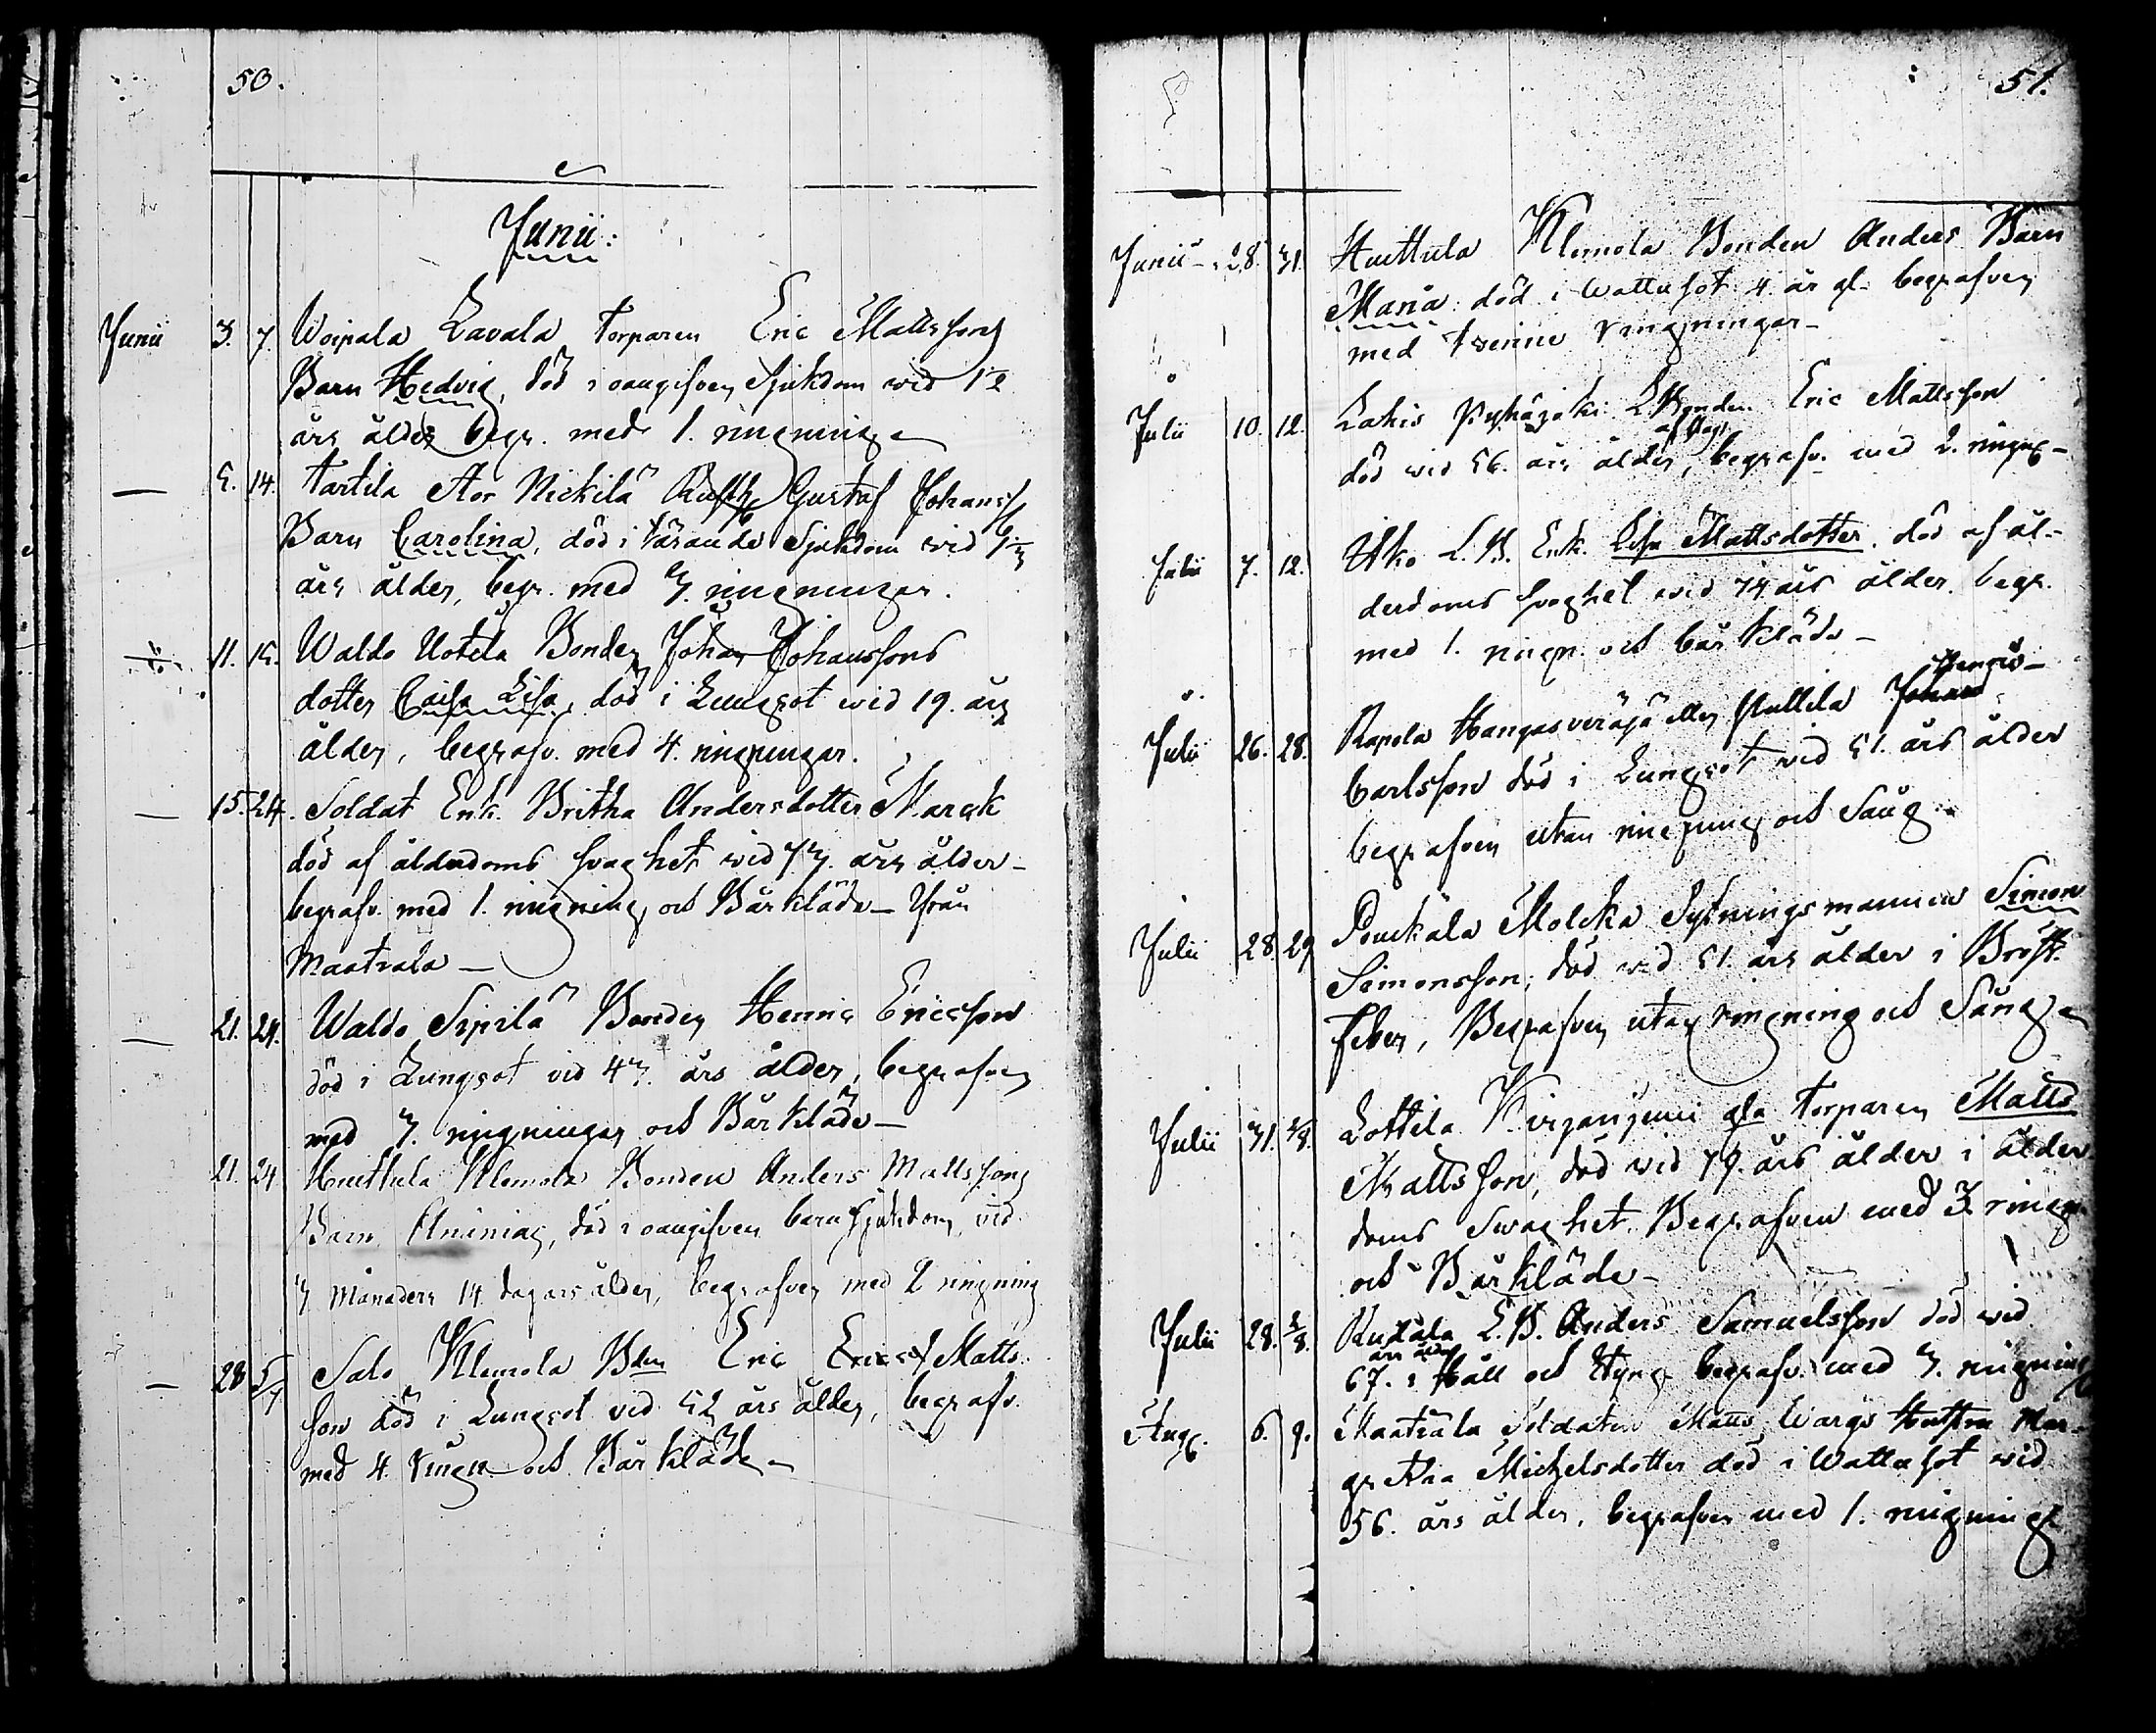 50.
Junii:
Junii 3. 7. Woipala Lavala Torparen Eric Mattssons
Barn Hedvig, död i oangifven Sjukdom wid 1½
års ålder begr. med 1. ringning
— 5. 14. Tartila Stor Nickilä Rusth. Gustaf Johanss
Barn Carolina, död i tärande Sjukdom wid
års ålder, begr. med 3. ringningar.
11. 15. Waldo Uotila Bonden Johan Johanssons
dotter Caisa Lisa, död i Lungsot wid 19. års
ålder, begrafv. med 4. ringningar.
— 15. 24. Soldat Enk. Britha Andersdotter Marck
död af ålderdoms svaghet wid 73. års ålder –
begrafv. med 1. ringning och Bårkläde – från
Maatiala —
— 21. 24. Waldo Sipilä Bonden Henric Ericsson
död i Lungsot vid 43. års ålder, begrafven
med 3. ringningar och Bårkläde —
21. 24 Huittula Klemola Bonden Anders Mattssons
Barn Ananias, död i oangifven barnsjukdom, vid
3 Månaders 14 dagars ålder, begrafven med 2 ringning
— 28 5/7 Salo Klemola Bden Eric Matts-
son död i Lungsot vid 52 års ålder, begrafv.
med 4. ringn. och Bårkläde –
51.
Junii – 28. 31. Huittula Klemola Bonden Anders Barn
Maria död i Wattusot 4 år gl. begrafven
med trenne ringningar –
Julii 10. 12. Lahis Pyhäjoki L. Bonden Eric Mattsson
död wid 56. års ålder, begrafv. med 2. ringng –
Julii 7. 12. Uko L. B. Enk. Lisa Mattsdotter. död af ål-
derdoms svaghet wid 74 års ålder. begr.
med 1. ringn. och bårkläde –
Henric –
Julii 26. 28. Rapola Hangasveräjä eller Huttila
Carlsson död i Lungsot wid 51. års ålder
begrafven utan ringning och Sång
Julii 28. 29 Pouckala Molcka Sytningsmannen Simon
Simonsson, död wid 51. års ålder i Bröst-
feber, Begrafven utan ringning och Sång
Julii 31. 2/8. Lottila Kirjanjemi gla Torparen Matts
Mattsson, död wid 79. års ålder i ålder
doms Swaghet. Begrafven med 3. ringn.
och Bårkläde –
Julii 28. 2/8. Rudala L. B. Anders Samuelsson död wid
års ålder
67. i håll och styng begrafv. med 3. ringning
Aug. 6. 9. Maatiala Soldaten Matts Wargs Hustru Mar-
gretha Michelsdotter död i Wattusot wid
56. års ålder, begrafven med 1. ringning